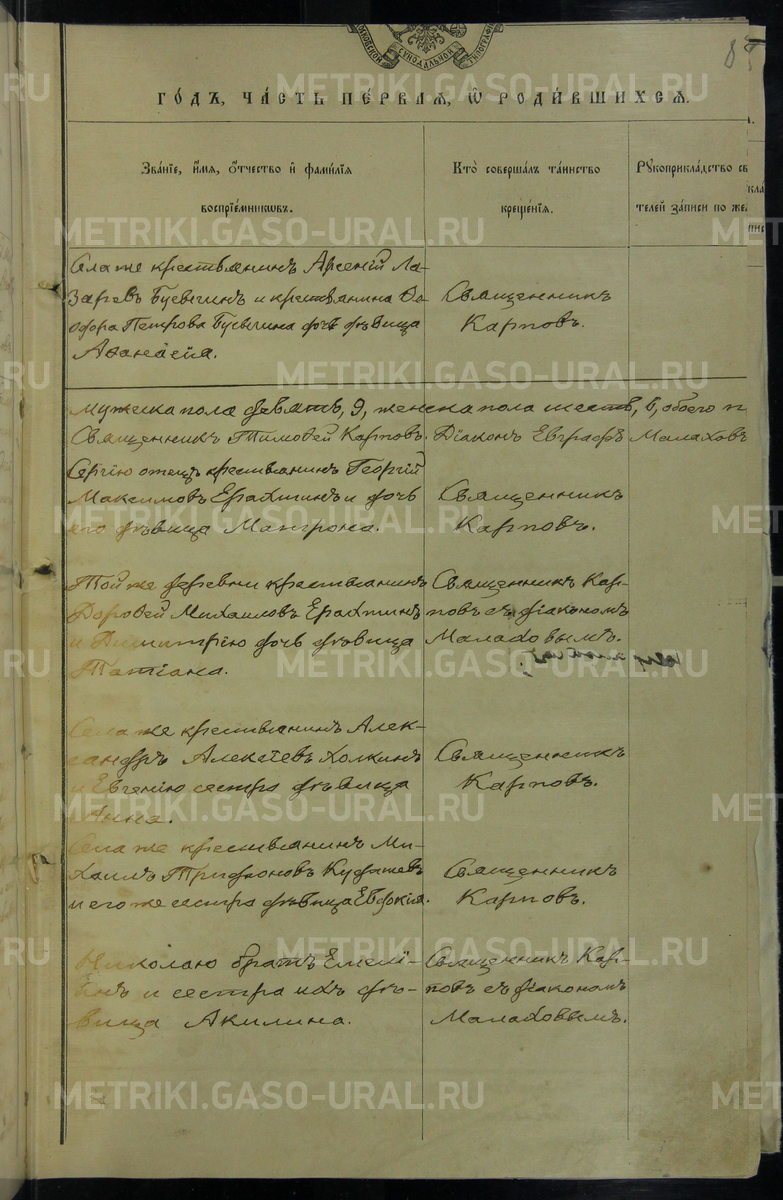 МОСКОВСКОЙ СУНОДАЛЬНОЙ ТИПОГРАФІИ
8
ГО́ДЪ, ЧА́СТЬ ПЕ́РВАЯ, Ѡ҆ РОДИ́ВШИХСЯ.
Зва́нїе, и҆́мя, Ѻ҆́тчество и҆ фами́лїя
воспрїе́мникѡвъ.
Кто̀ соверша́лъ та́инство
креще́нїя.
Рꙋкоприкла́дство св
телей за́писи по же
Села же крестьянинъ Арсеній Ла-
заревъ Бусыгинъ и крестьянина Ѳе-
одора Петрова Бусыгина дочь дѣвица
Аѳанасія.
Священникъ
Карповъ.
Мужеска пола девять, 9, женска пола шесть, 6, обоего п
Священникъ Тимоѳей Карповъ. Діаконъ Евграфъ Малаховъ
Сергію отецъ крестьянинъ Георгій
Максимовъ и дочь
его дѣвица Матрона.
Священникъ
Карповъ.
Той же деревни крестьянинъ
Дороѳей Михаиловъ
и Димитрію дочь дѣвица
Татіана.
Священникъ Кар-
повъ съ діакономъ
Малаховымъ.
Села же крестьянинъ Алек-
сандръ Алексѣевъ Холкинъ
и Евгенію сестра дѣвица
Анна.
Священникъ
Карповъ.
Села же крестьянинъ Ми-
хаилъ Трифоновъ
и его же сестра дѣвица Евдокія.
Священникъ
Карповъ.
Николаю братъ Емелі-
анъ и сестра ихъ дѣ-
вица Акилина.
Священникъ Кар-
повъ съ діакономъ
Малаховымъ.
METRIKI.GASO-URAL.RU